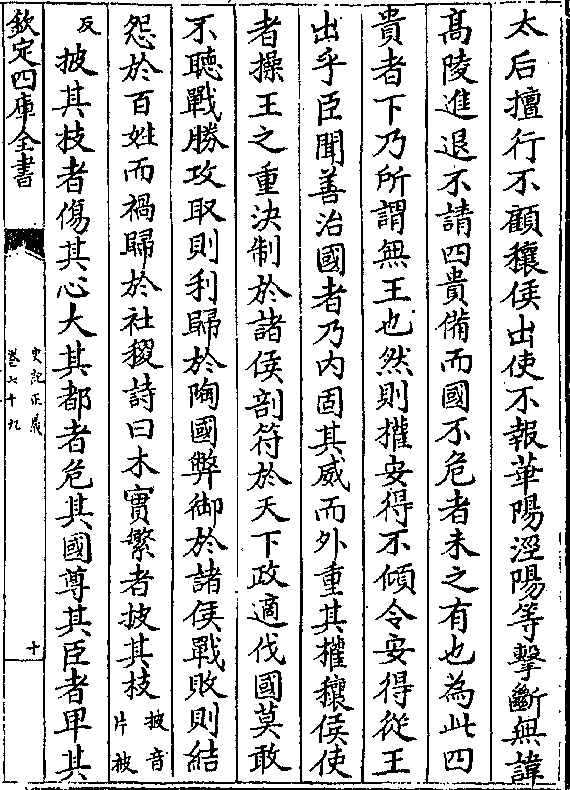 太后擅行不顧穰侯出使不報華陽涇陽等擊斷無諱
髙陵進退不請四貴備而國不危者未之有也為此四
貴者下乃所謂無王也然則權安得不傾令安得從王
出乎臣聞善治國者乃内固其威而外重其權穰侯使
者操王之重決制於諸侯剖符於天下政適伐國莫敢
不聽戰勝攻取則利歸於陶國弊御於諸侯戰敗則結
怨於百姓而禍歸於社稷詩曰木實繁者披其枝披音片被
反披其枝者傷其心大其都者危其國尊其臣者卑其
欽定四庫全書
史記正義
卷七十九
十